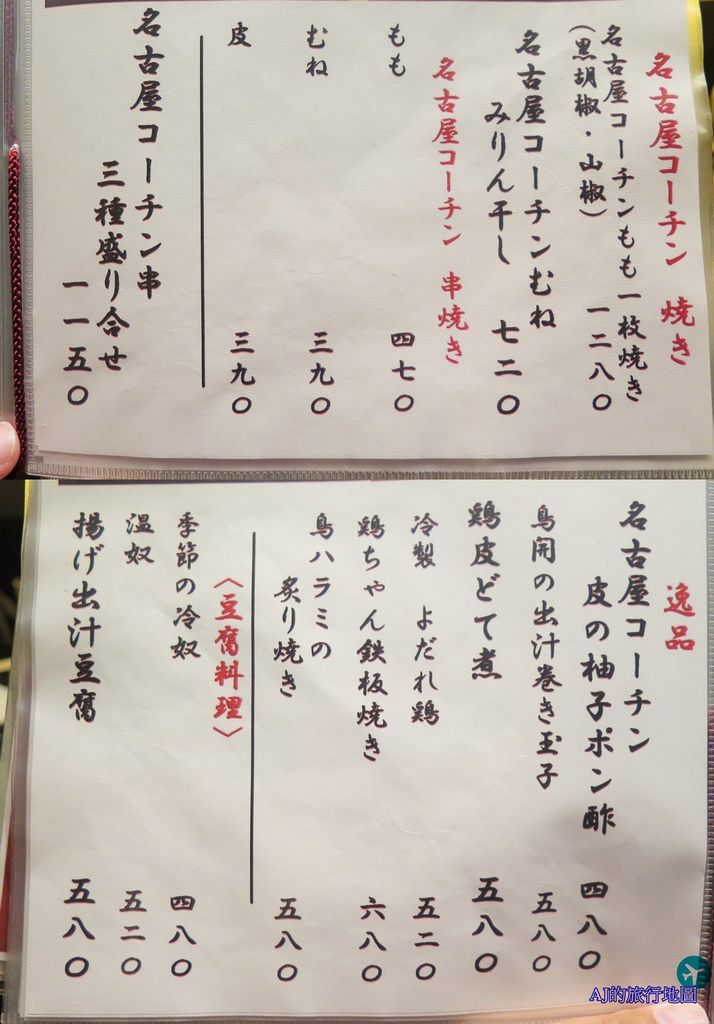 名古屋コーチン 焼き
名古屋コーチンもも一枚焼き
(黒胡椒・山椒) 一二八〇
名古屋コーチンむね
みりん干し 七二〇
名古屋コーチン 串焼き
もも 四七〇
むね 三九〇
皮 三九〇
名古屋コーチン串
三種盛り合せ 一一五〇
逸品
名古屋コーチン
皮の柚子ポン酢 四八〇
鳥開の出汁巻き玉子 五八〇
鶏皮どて煮 五八〇
冷製 よだれ鶏 五二〇
鶏ちゃん鉄板焼き 六八〇
鳥ハラミの
炙り焼き 五八〇
〈豆腐料理〉
季節の冷奴 四八〇
温奴 五二〇
揚げ出汁豆腐 五八〇
AJ的旅行地圖